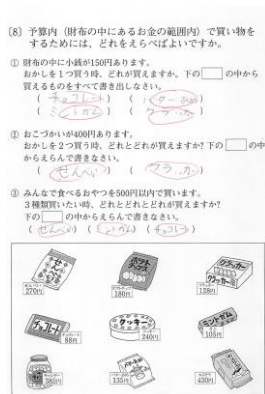 〔8〕予算内（財布の中にあるお金の範囲内）で買い物を
するためには、どれをえらべばよいですか。
① 財布の中に小銭が150円あります。
おかしを1つ買う時、どれが買えますか。下の□の中から
買えるものをすべて書き出しなさい。
（チョコレート）（バターあめ）
（ミントガム）（クラッカー）
② おこづかいが400円あります。
おかしを2つ買う時、どれとどれが買えますか?下の□の中
からえらんで書きなさい。
（せんべい）（クラッカー）
③ みんなで食べるおやつを500円以内で買います。
3種類買いたい時、どれとどれとどれが買えますか?
下の□の中からえらんで書きなさい。
（せんべい）（ミントガム）（チョコレート）
ポテトチップス
クラッカー
270円
180円
128円
チョコレート
クッキー
ミントガム
88円
240円
105円
380円
135円
430円